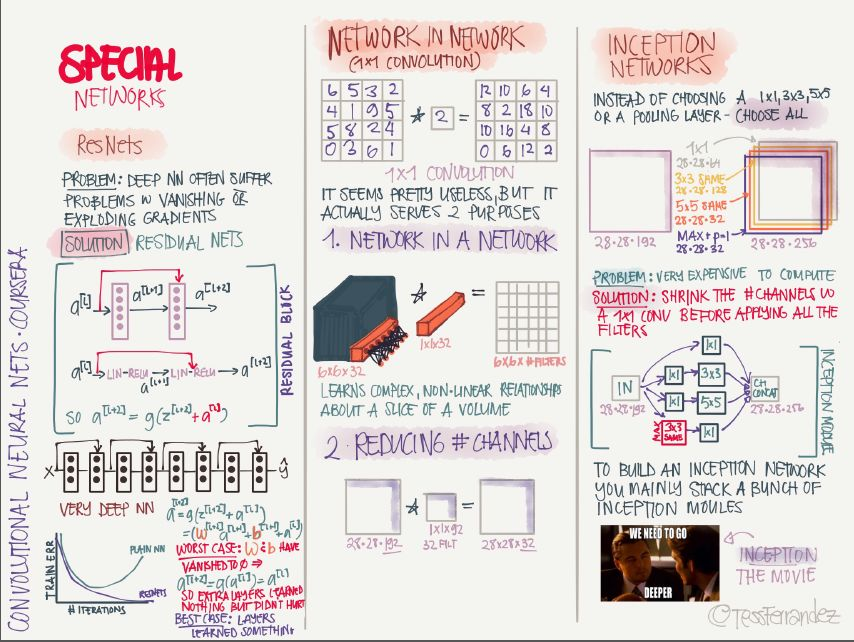 CONVOLUTIONAL NEURAL NETS · COURSERA
SPECIAL
NETWORKS
ResNets
PROBLEM: DEEP NN OFTEN SUFFER
PROBLEMS W VANISHING OR
EXPLODING GRADIENTS
SOLUTION RESIDUAL NETS
a[l] a[l+1] a[l+2]
a[l] LIN-RELU LIN-RELU a[l+2]
a[l+1]
SO a[l+2] = g(z[l+2] + a[l])
RESIDUAL BLOCK
X ŷ
VERY DEEP NN
a[l+2] = g(z[l+2] + a[l])
= (w[l+2] a[l+1] + b[l+2] + a[l])
WORST CASE: W & b HAVE
VANISHED TO 0 ⇒
a[l+2] = g(a[l]) = a[l]
SO EXTRA LAYERS LEARNED
NOTHING BUT DIDNT HURT
BEST CASE: LAYERS
LEARNED SOMETHING
TRAIN ERR
PLAIN NN
RESNETS
# ITERATIONS
NETWORK IN NETWORK
(1x1 CONVOLUTION)
6 5 3 2
4 1 9 5
5 8 2 4
0 3 6 1
* 2 =
12 10 6 4
8 2 18 10
10 16 4 8
0 6 12 2
1x1 CONVOLUTION
IT SEEMS PRETTY USELESS, BUT IT
ACTUALLY SERVES 2 PURPOSES
1. NETWORK IN A NETWORK
* =
6x6x32
1x1x32
6x6x # FILTERS
LEARNS COMPLEX, NON-LINEAR RELATIONSHIPS
ABOUT A SLICE OF A VOLUME
2. REDUCING # CHANNELS
* =
28·28·192
1x1x192
32 FILT
28x28x32
INCEPTION
NETWORKS
INSTEAD OF CHOOSING A 1x1, 3x3, 5x5
OR A POOLING LAYER - CHOOSE ALL
1x1
28·28·64
3x3 SAME
28·28·128
5x5 SAME
28·28·32
MAX + p=1
28·28·32
28·28·192
28·28·256
PROBLEM: VERY EXPENSIVE TO COMPUTE
SOLUTION: SHRINK THE # CHANNELS W
A 1x1 CONV BEFORE APPLYING ALL THE
FILTERS
IN
28·28·192
1x1
1x1 3x3
1x1 5x5
MAX 3x3 SAME 1x1
CH CONCAT
28·28·256
INCEPTION MODULE
TO BUILD AN INCEPTION NETWORK
YOU MAINLY STACK A BUNCH OF
INCEPTION MODULES
WE NEED TO GO
DEEPER
INCEPTION
THE MOVIE
@TessFerrandez